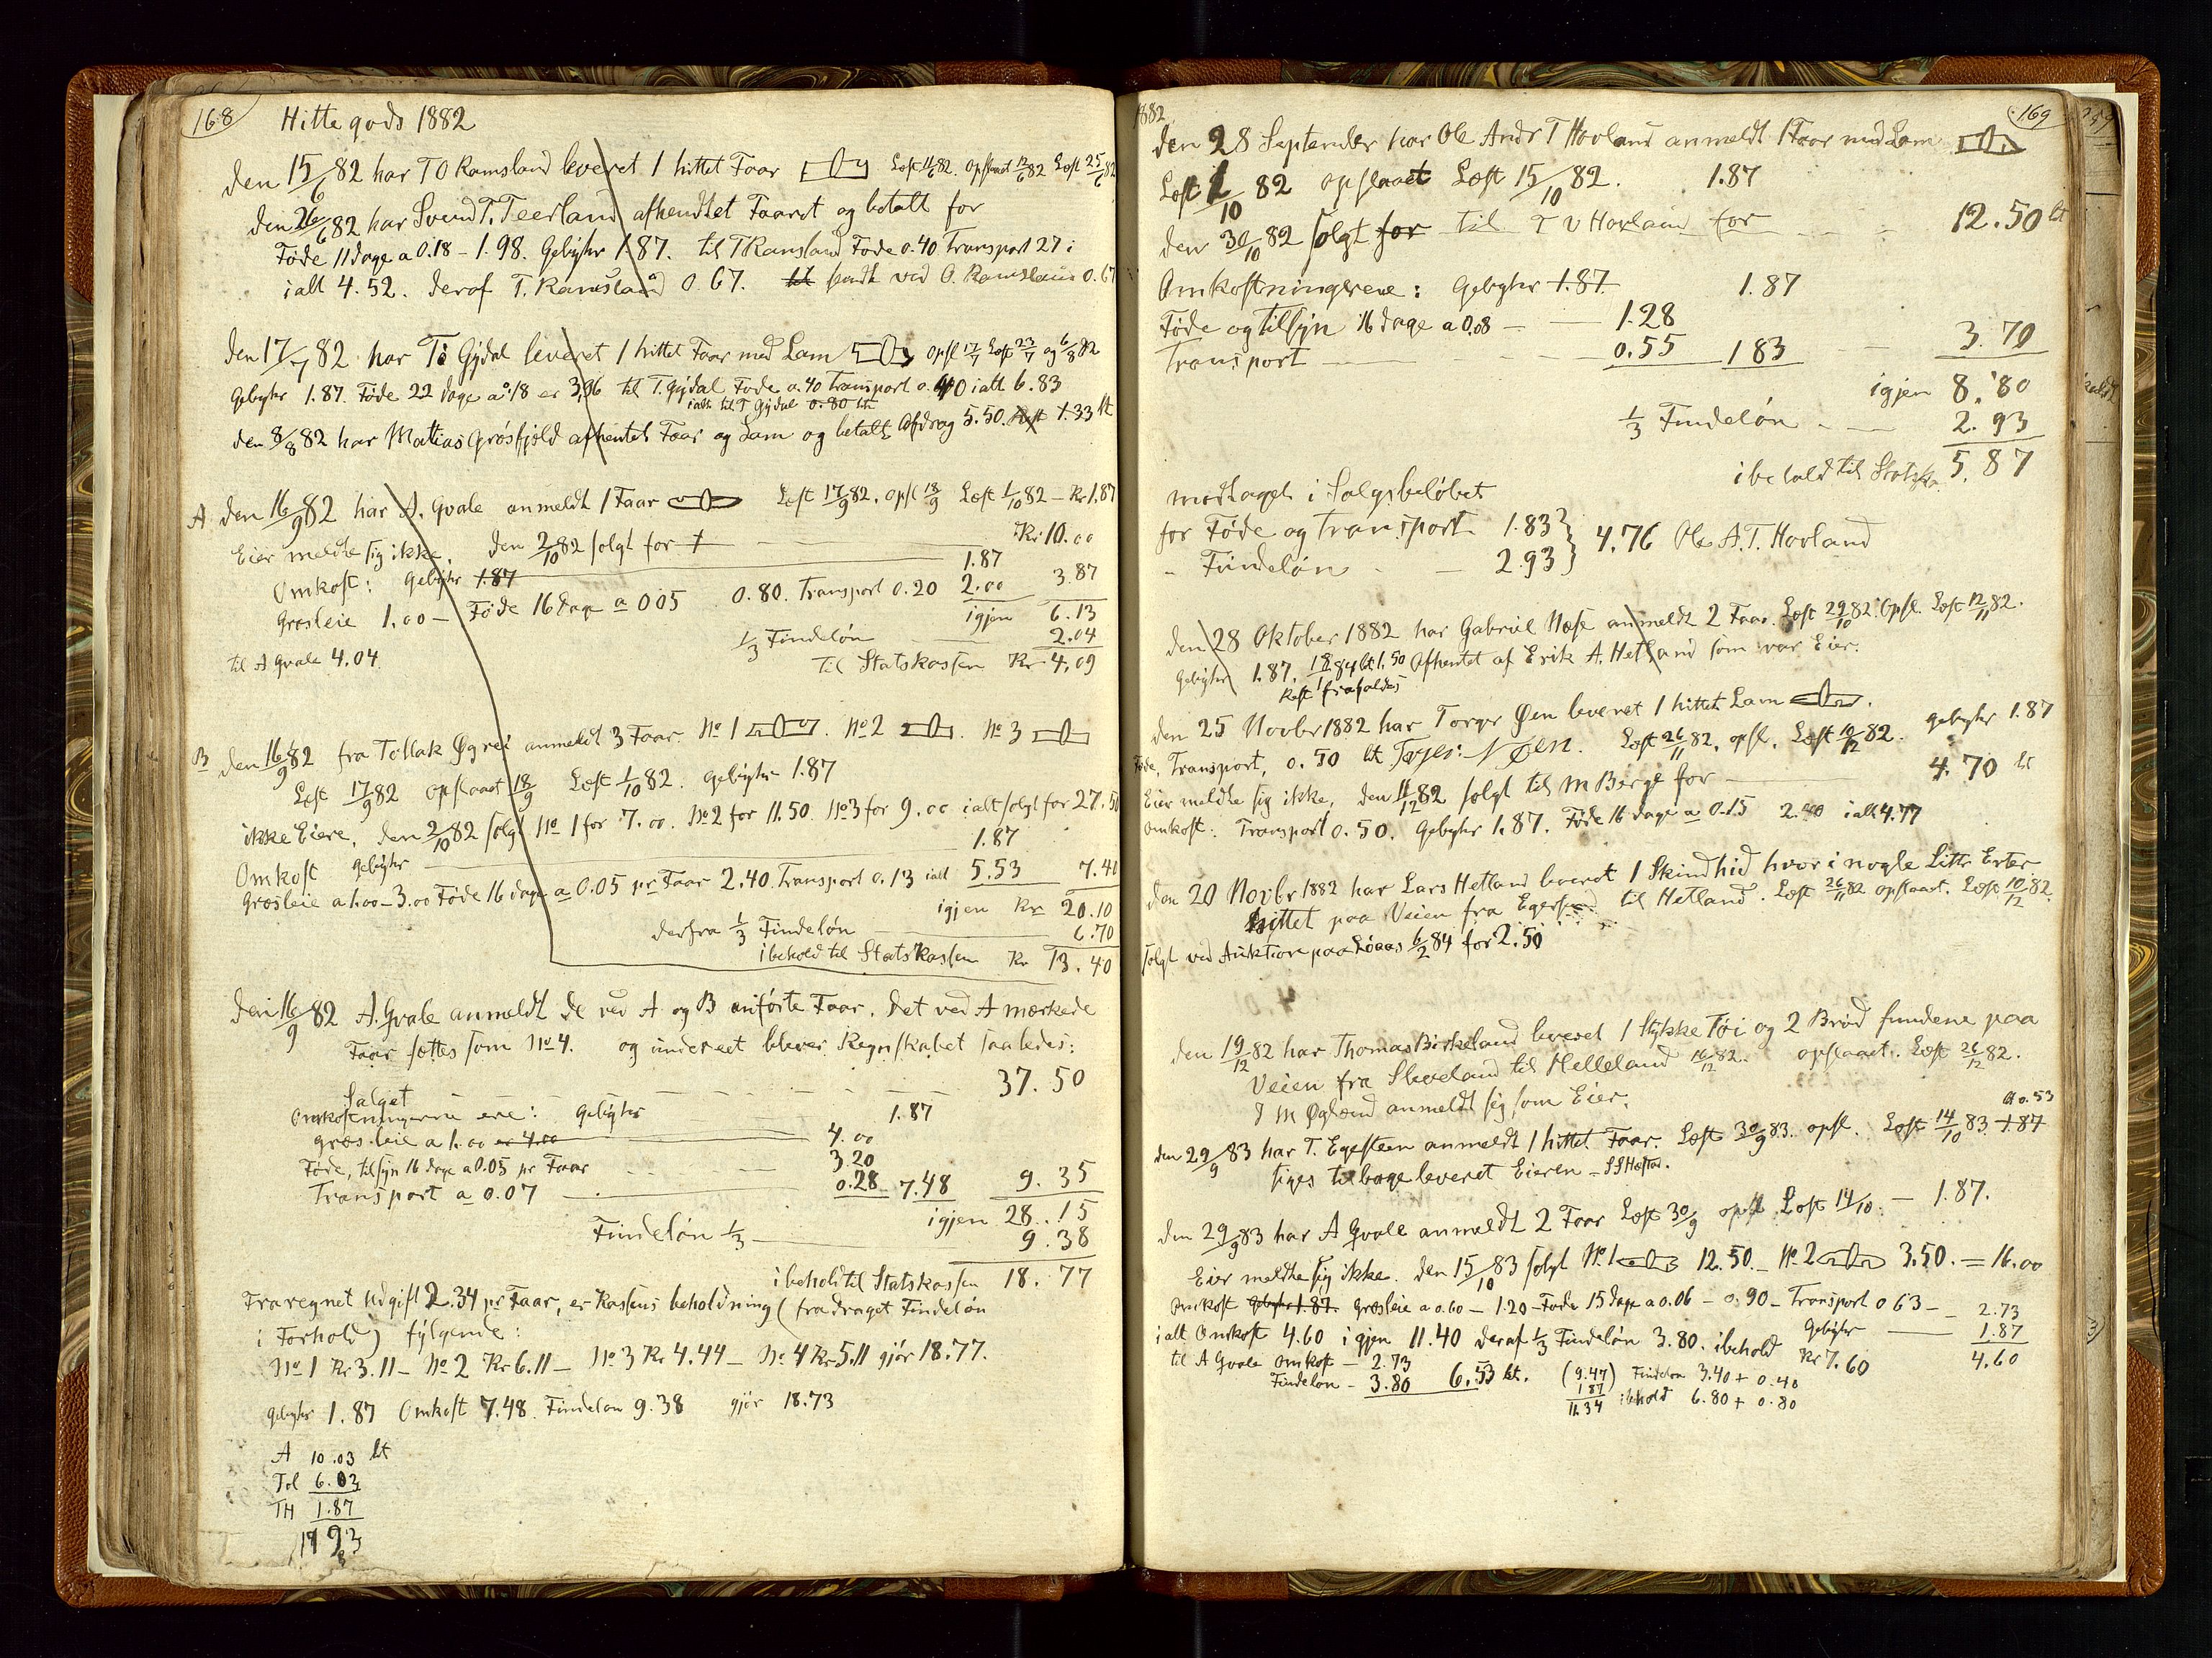 168 Hittegods 1882
den 15/6 82 har T O Ramsland leveret 1 hittet Faar Læst 11/6 82. Opslaat 12/6 82 Læst 25/6 82
den 26/6 82 har Svend T. Teerland afhendtet Faaret og betalt for
Føde 11 dage a 0.18 – 1.98. Gebyhr 1.87. til T Ramsland Føde 0.40 Transport 27 i
ialt 4.52. deraf T. Ramsland 0.67. sendt ved O. Ramsland 0.67
den 17/7 82 har To Gydal leveret 1 hittet Faar med Lam opsl 17/7 Læst 23/7 og 6/8 82
Gebyhr 1.87. Føde 22 dage a 0.18 er 3.96 til T. Gydal Føde 0.40 Transport 0.40 ialt 6.83
ialt til T Gydal 0.80
den 8/8 82 har Matias Grøsfjeld afhentet Faar og Lam og betalt Afdrag 5.50. Rest 1.33 bt
A den 16/9 82 har A. Qvale anmeldt 1 Faar Læst 17/9 82. opsl 18/9 Læst 1/10 82 – Kr 1.87
Eier meldte sig ikke. den 2/10 82 solgt for + Kr. 10.00
Omkost: Gebyhr 1.87 1.87
Græsleie 1.00 – Føde 16 dage a 0.05 0.80. Transport 0.20 2.00 3.87
igjen 6.13
1/3 Findeløn 2.04
til A Qvale 4.04. Til Statskassen Kr. 4.09
B den 16/9 82 fra Tollak Øgrei anmeldt 3 Faar. No 1 . No 2 . No 3
Læst 17/9 82 opslaaet 18/9 Læst 1/10 82. Gebyhr 1.87
ikke Eiere. den 2/10 82 solgt No 1 for 7.00. No 2 for 11.50. No 3 for 9.00 ialt solgt for 27.50
Omkost Gebyhr 1.87
Græsleie a 1.00 – 3.00 Føde 16 dage a 0.05 pr Faar 2.40. Transport 0.13 ialt 5.53 7.40
igjen Kr 20.10
derfra 1/3 Findeløn 6.70
ibehold til Statskassen Kr 13.40
den 16/9 82 A. Qvale anmeldt de ved A og B anførte Faar. Det ved A mærkede
Faar sættes som No 4. og under eet bliver Regnskabet saaledes:
Salget 37.50
Omkostningerne ere: Gebyhr 1.87
græsleie a 1.00 4.00
Føde, tilsyn 16 dage a 0.05 pr Faar 3.20
Transport a 0.07 0.28 7.48 9.35
igjen 28.15
Findeløn 1/3 9.38
ibehold til Statskassen 18.77
Fraregnet Udgift 2.34 pr Faar, er Kassens beholdning (fradraget Findeløn
i Forhold) følgende:
No 1 Kr 3.11 – No 2 Kr 6.11 – No 3 Kr 4.44 – No 4 Kr 5.11 gjør 18.77.
Gebyhr 1.87 Omkost 7.48. Findeløn 9.38 gjør 18.73
A 10.03 bt
Tol 6.03
TH 1.87
1882 169
den 28 September har Ole Andr T Hovland anmeldt 1 Faar med Lam
Læst 1/10 82 opslaaet Læst 15/10 82. 1.87
den 30/10 82 solgt for til T V Hovland for 12.50 bt
Omkostningerne: Gebyhr 1.87 1.87
Føde og tilsyn 16 dage a 0.08 – 1.28
Transport 0.55 1 83 3.70
igjen 8.80
1/3 Findeløn 2.93
ibehold til Statska. 5.87
modtaget i Salgsbeløbet
for Føde og Transport 1.83
- Findeløn 2.93 } 4.76 Ole A. T. Hovland
den 28 Oktober 1882 har Gabriel Næse anmeldt 2 Faar. Læst 29/10 82. Opsl. Læst 12/11 82.
Gebyhr 1.87. 84 bt 1.50 Afhentet af Erik A. Hetland som var Eier.
Rest frafaldes
den 25 Novbr 1882 har Torger Øen leveret 1 hittet Lam .
Føde, Transport, 0.50 bt Torger N Øen. Læst 26/11 82. opsl. Læst 10/12 82. Gebyhr 1.87
Eier meldte sig ikke. den 11/12 82 solgt til M Berge for 4.70 bt
Omkost: Transport 0.50. Gebyhr 1.87. Føde 16 dage a 0.15 2.40 ialt 4.77
den 20 Novbr 1882 har Lars Hetland leveret 1 Skindhid hvori nogle Littr Erter
hittet paa Veien fra Egersund til Hetland. Læst 26/11 82 opslaaet. Læst 10/12 82.
solgt ved Auktion paa Løaas 6/2 84 for 2.50
den 19/12 82 har Thomas Birkeland leveret 1 stykke Tøi og 2 Brød fundene paa
Veien fra Sleveland til Helleland 16/12 82. opslaaet. Læst 26/12 82.
I M Øglænd anmeldt sig som Eier.
bt 0.53
den 29/9 83 har T. Egesteen anmeldt 1 hittet Faar. Læst 30/9 83. opsl. Læst 14/10 83 1.87
siges tilbageleveret Eieren –
den 29/9 83 har A Qvale anmeldt 2 Faar Læst 30/9 opsl Læst 14/10. – 1.87.
Eier meldte sig ikke. den 15/10 83 solgt No. 1 12.50 – No. 2 3.50. = 16.00
Omkost Gebyhr 1.87. Græsleie a 0.60 – 1.20 – Føde 15 dage a 0.06 – 0.90 – Transport 0 63 – 2.73
Gebyhr 1.87
ialt Omkost 4.60 igjen 11.40 deraf 1/3 Findeløn 3.80. ibehold Kr 7.60 4.60
til A Qvale Omkost – 2.73
Findeløn – 3.80 6.53 bt. (9.47) Findeløn 3.40 + 0.40
1 87
11.34 ibehold 6.80 + 0.80